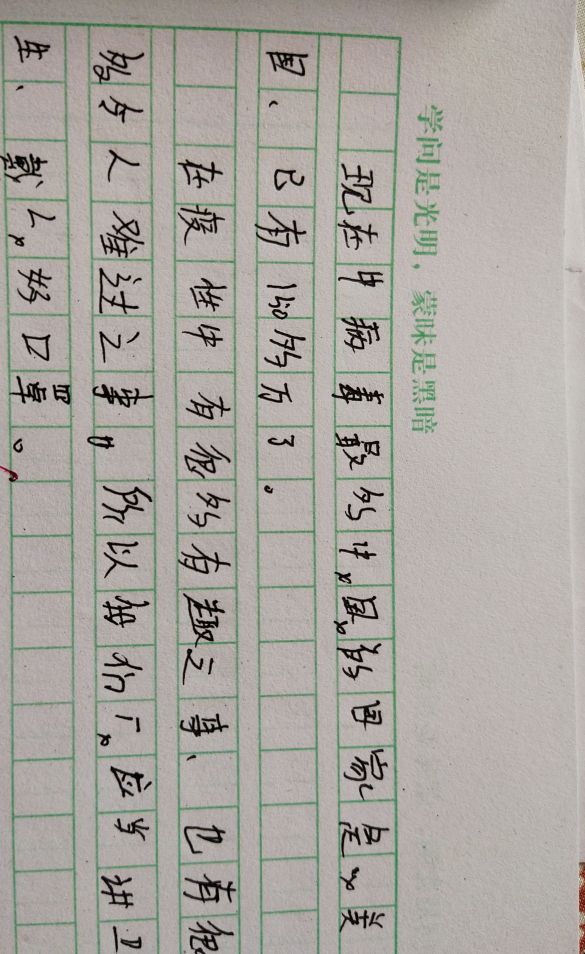 学问是光明，蒙昧是黑暗
现在中病毒最多中国的国家是美
国、已有130多万了。
在疫性中有很多有趣之事、也有很
多令人难过之事。所以我们厂应当讲卫
生、戴好口罩。